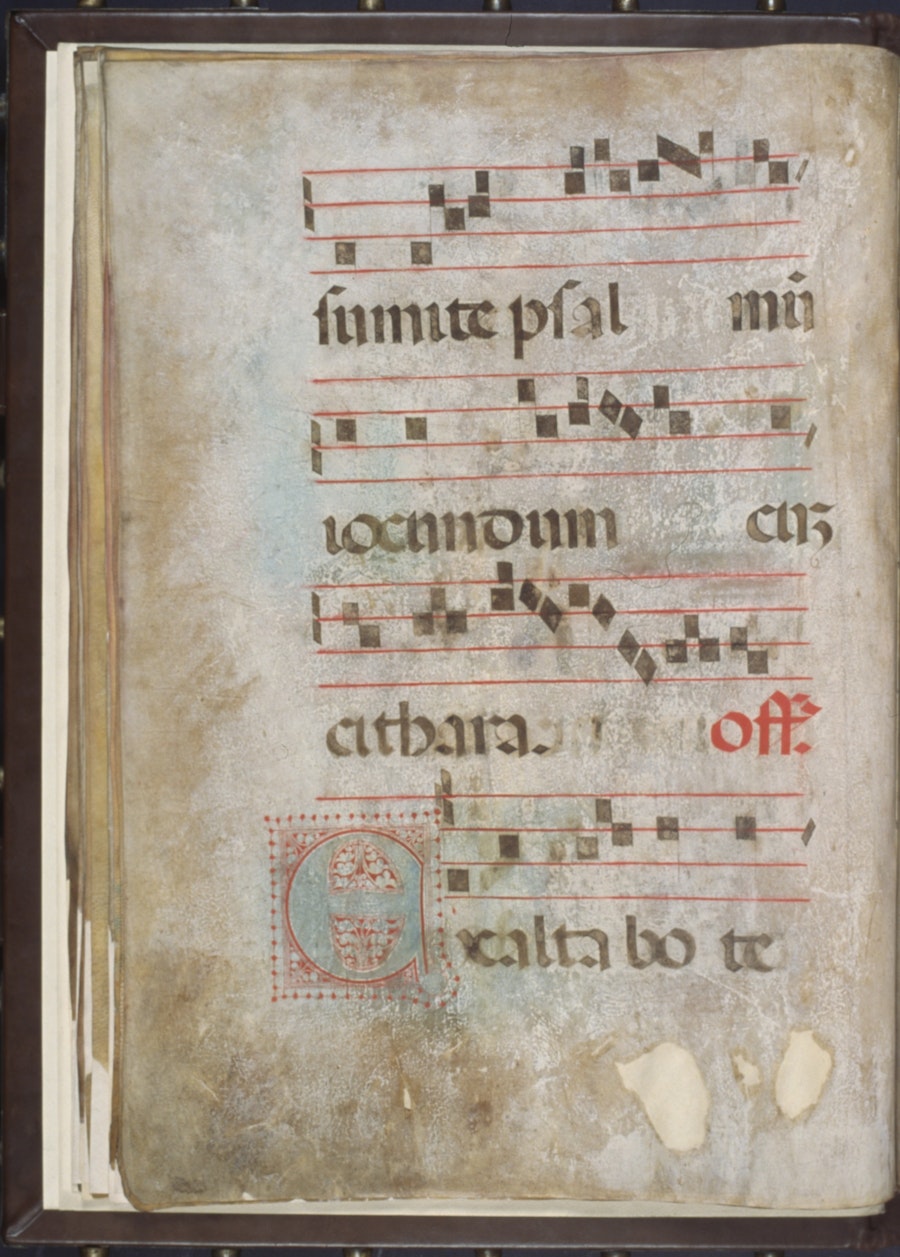 sumite psal mū
iocundum cuꝫ
cithara. off.
Exalta bo te